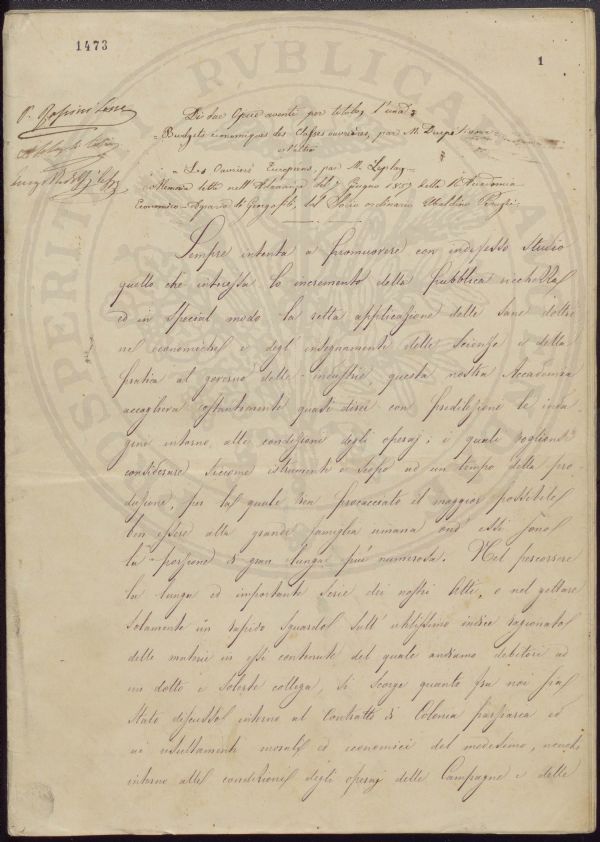 1473
1
Di due Opere aventi per titolo, l'una
"Budgets économiques des Classes ouvrières, par M. Ducpétiaux
l'altra
"Les Ouvriers Européens, par M. Leplay
Memoria letta nell'Adunanza del 7 Giugno 1857 della R. Accademia
Economico-Agraria de' Georgofili, dal Socio ordinario Ubaldino Peruzzi.
Sempre intenta a promuovere con indefesso studio
quello che interessa lo incremento della pubblica ricchezza
ed in special modo la retta applicazione delle sane dottri
ne economiche e degl'insegnamenti delle scienze e della
pratica al governo delle industrie questa nostra Accademia
accoglieva costantemente quasi direi con predilezione le inda
gini intorno alle condizioni degli operaj; i quali voglionsi
considerare siccome istrumenti e scopo ad un tempo della pro
duzione, per la quale sia procacciato il maggior possibile
ben essere alla grande famiglia umana ond'essi sono
la porzione di gran lunga più numerosa. Nel percorrere
la lunga ed importante serie dei nostri Atti, o nel gettare
solamente un rapido sguardo sull'utilissimo indice ragionato
delle materie in essi contenute del quale andiamo debitori ad
un dotto e solerte collega, si scorge quanto fra noi sia
stato discusso intorno al Contratto di Colonia parziaria ed
ai resultamenti morali ed economici del medesimo, nonchè
intorno alle condizioni degli operaj delle Campagne e delle